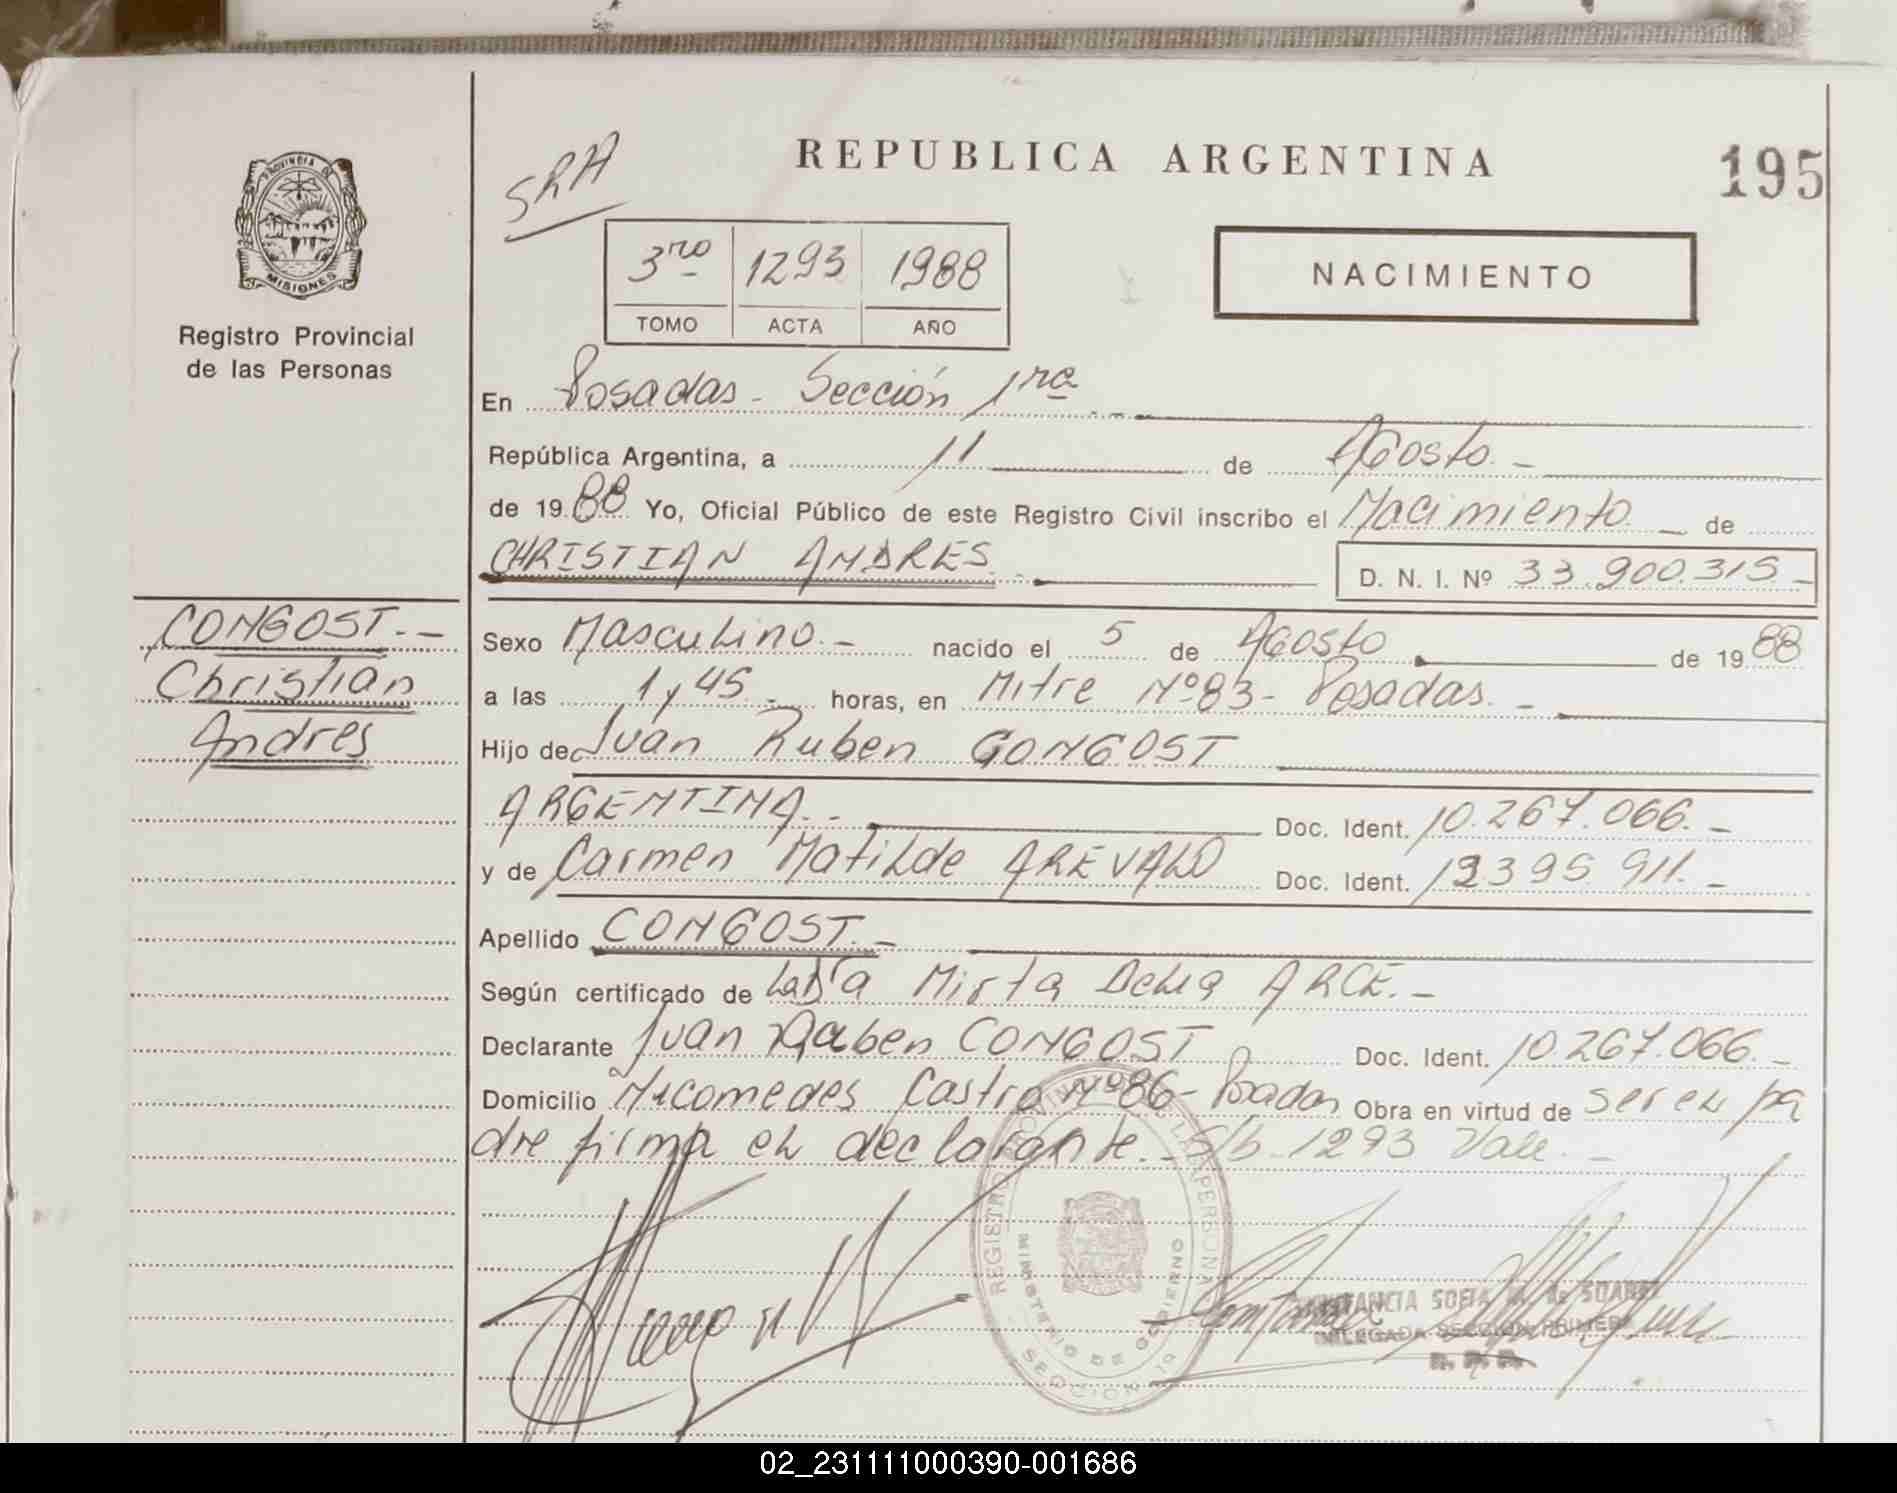 REPUBLICA ARGENTINA
195
SRA
PROVINCIA DE
MISIONES
Registro Provincial
de las Personas
3ro 1293 1988
TOMO ACTA AÑO
NACIMIENTO
En Posadas - Sección 1ra
República Argentina, a 11 de Agosto. -
de 1988 Yo, Oficial Público de este Registro Civil inscribo el Nacimiento - de
CHRISTIAN ANDRES. -
D. N. I. Nº 33.900.315 -
CONGOST. -
Christian
Andres
Sexo Masculino. - nacido el 5 de Agosto de 1988
a las 1 y 45 - horas, en Mitre Nº 83 - Posadas. -
Hijo de Juan Ruben CONGOST
ARGENTINA. - Doc. Ident. 10.267.066. -
y de Carmen Matilde AREVALO Doc. Ident. 12395 911. -
Apellido CONGOST. -
Según certificado de Mirta Delia ARCE. -
Declarante Juan Ruben CONGOST Doc. Ident. 10.267.066. -
Domicilio Nicomedes Castro Nº 86 - Posadas Obra en virtud de ser el pa
dre firma el declarante. - S/b. 1293 Vale. -
REGISTRO PROVINCIAL DE LAS PERSONAS
MINISTERIO DE GOBIERNO
SECCION 1ª
CONSTANCIA SOFIA DE SUAREZ
DELEGADA SECCION PRIMERA
R. P. P.
02_231111000390-001686